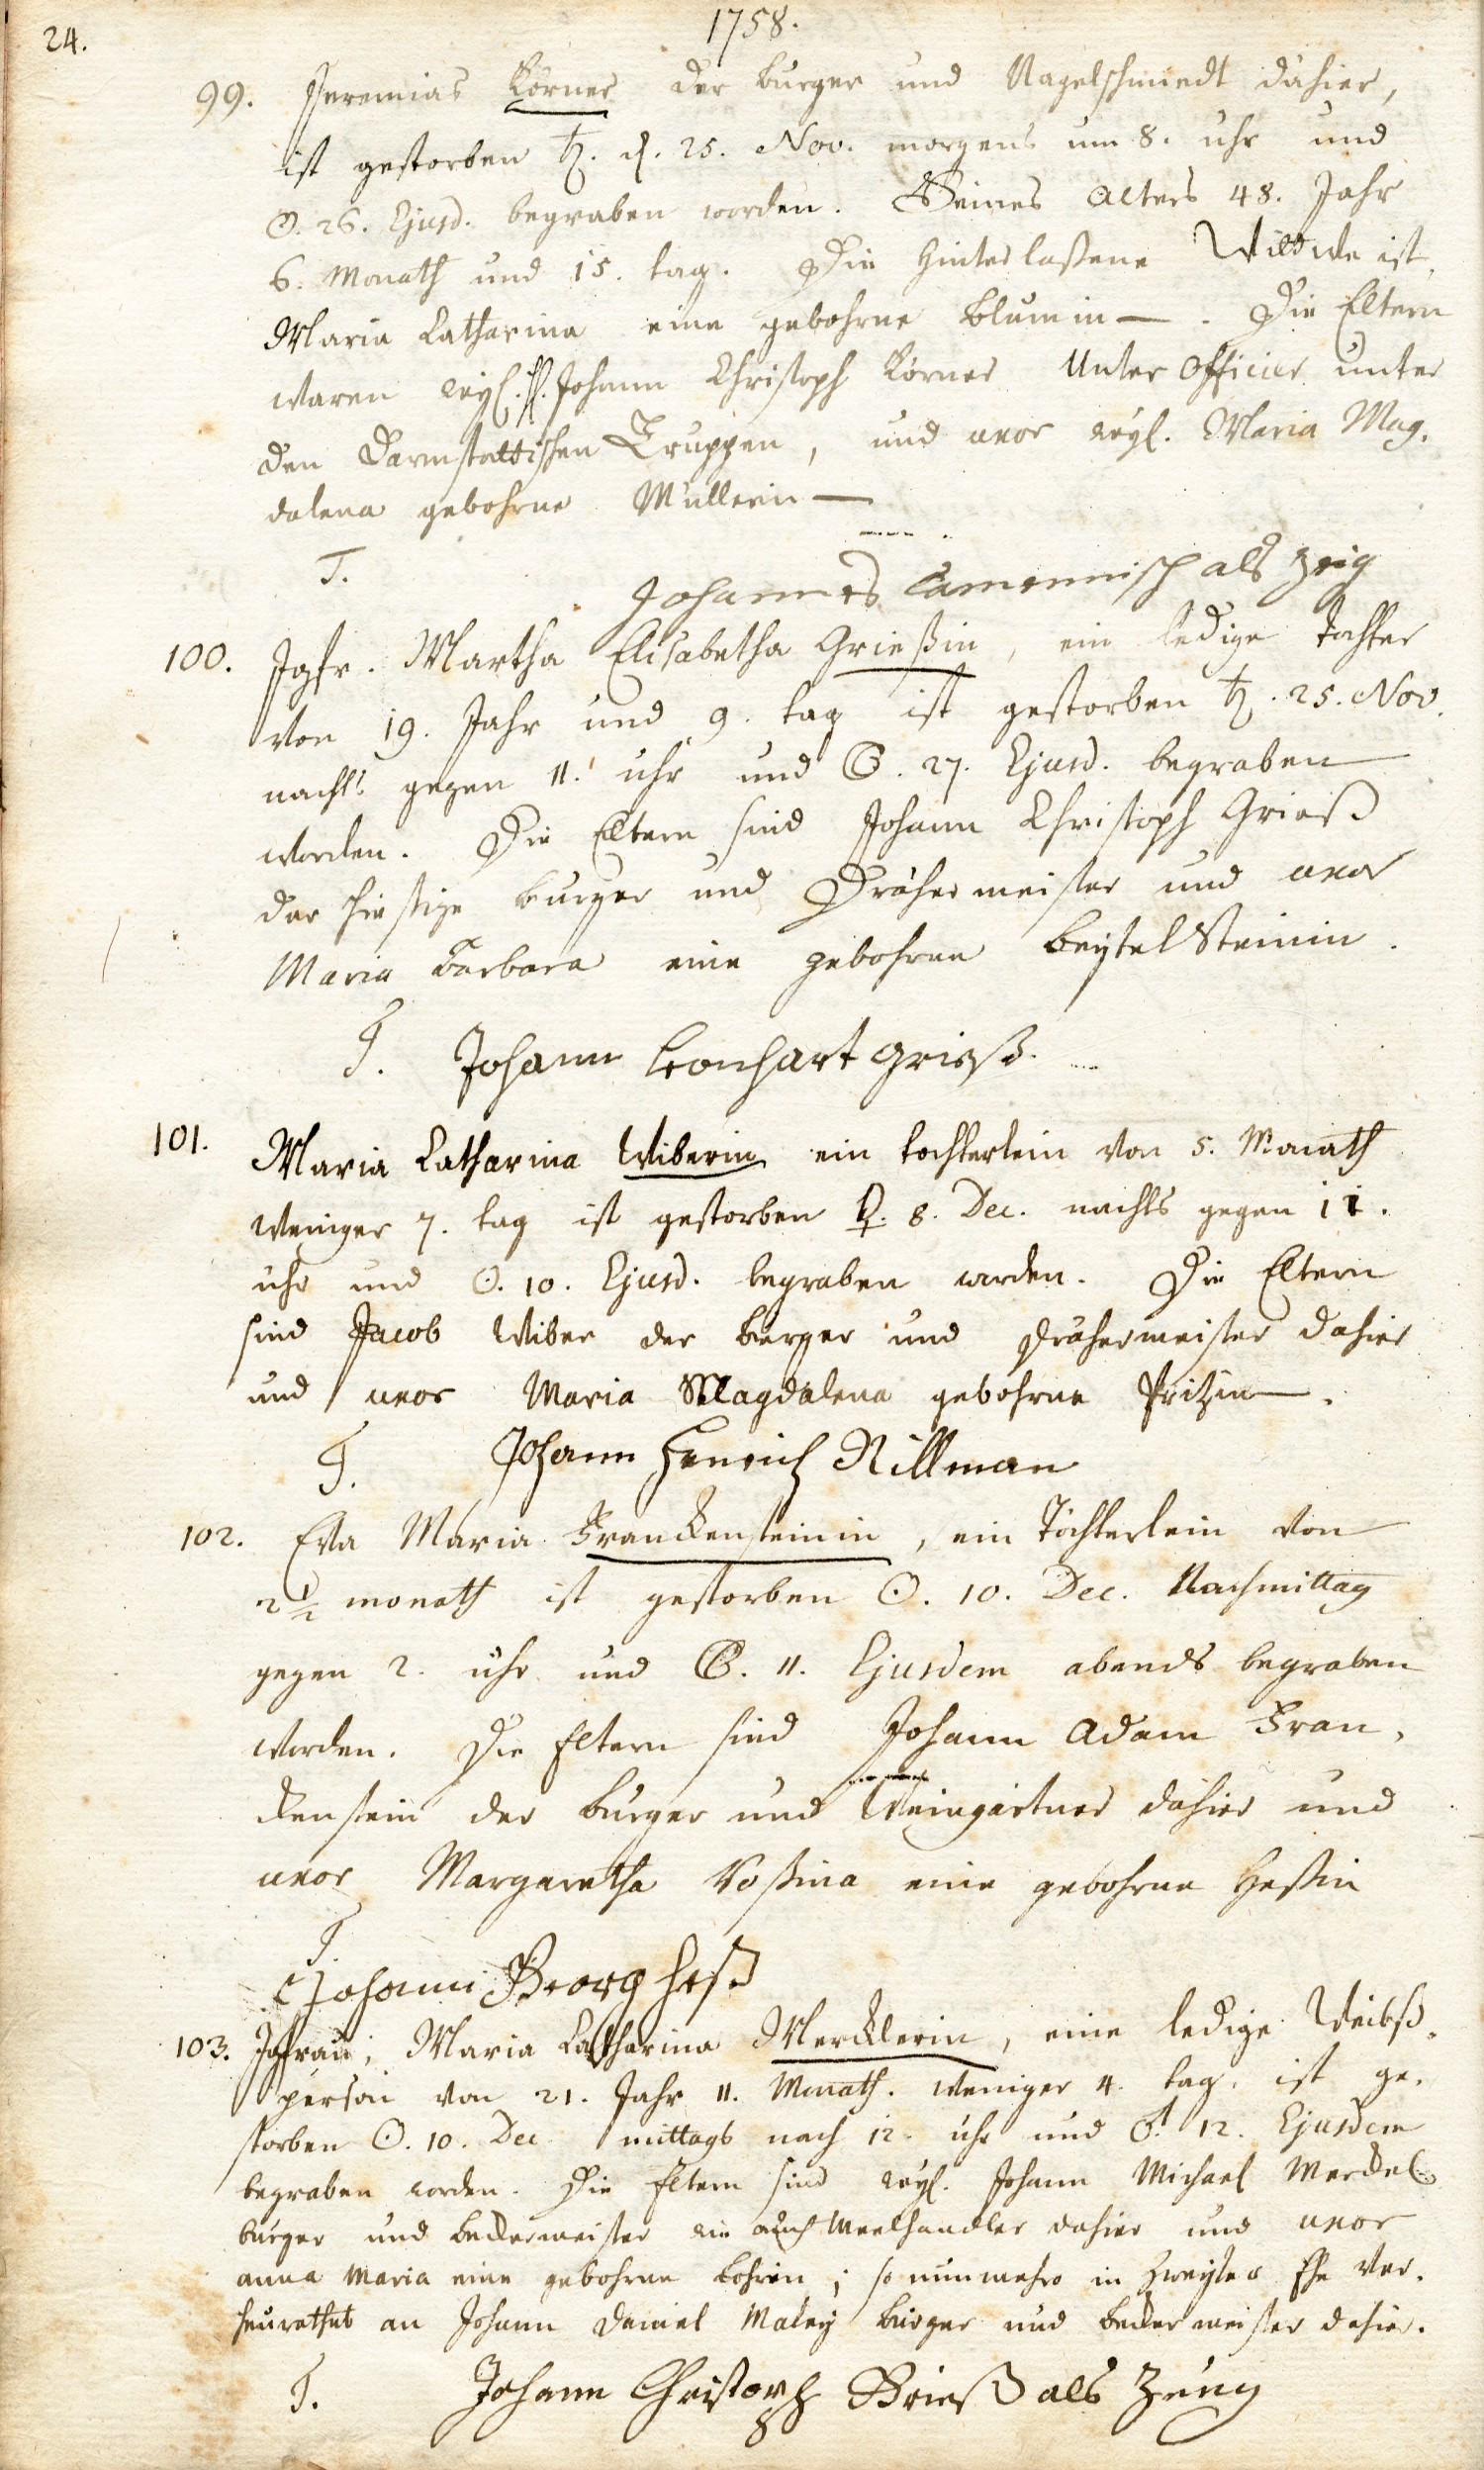 24.
1758.
99. Jeremias Körner der burger und Nagelschmiedt dahier,
ist gestorben ♄. d. 25. Nov. morgens um 8. uhr und
☉. 26. Ejusd. begraben worden. Seines Alters 48. Jahr
6. Monath und 15. tag. Die hinterlaßene Wittwe ist
Maria Catharina eine gebohrne Blumin —. Die Eltern
waren weyl. H. Johann Christoph Körner Unter Officier unter
den Darmstattischen Truppen, und uxor weyl. Maria Mag,
dalena gebohrne Müllerin —
T.
Johannes als Zeig
100. Jgfr. Martha Elisabetha Grießin, ein ledige Tochter
von 19. Jahr und 9. tag ist gestorben ♄. 25. Nov.
nachts gegen 11. uhr und ☾. 27. Ejusd. begraben
worden. Die Eltern sind Johann Christoph Grieß
der hiesige burger und Drähermeister und uxor
Maria Barbara eine gebohrne Beytelsteinin.
T. Johann Leonhart Grieß.
101. Maria Catharina Wiberin ein tochterlein von 5. Monath
weniger 7. tag ist gestorben ♀. 8. Dec. nachts gegen 11.
uhr und ☉. 10. Ejusd. begraben worden. Die Eltern
sind Jacob Wiber der burger und Drähermeister dahier
und uxor Maria Magdalena gebohrne Fritzin —.
T. Johann Henrich Rillman
102. Eva Maria Franckensteinin, ein Töchterlein von
2 1/2 monath ist gestorben ☉. 10. Dec. Nachmittag
gegen 2. uhr und ☾. 11. Ejusdem abends begraben
worden. Die Eltern sind Johann Adam Fran,
ckenstein der burger und Weingärtner dahier und
uxor Margaretha Rosina eine gebohrne Heßin
T.
Johann Georg Heß
103. Jgfrau, Maria Catharina Mercklerin, eine ledige Weibß,
person von 21. Jahr 11. Monath. weniger 4. tag. ist ge,
storben ☉. 10. Dec. mittags nach 12. uhr und ♂. 12. Ejusdem
begraben worden. Die Eltern sind weyl. Johann Michael Merckel
burger und beckermeister wie auch Meelhandler dahier und uxor
anna Maria eine gebohrne; so nunmehro in zweyter Ehe ver,
heurathet an Johann Daniel burger und beckermeister dahier.
T. Johann Christoph Grieß als Zeug